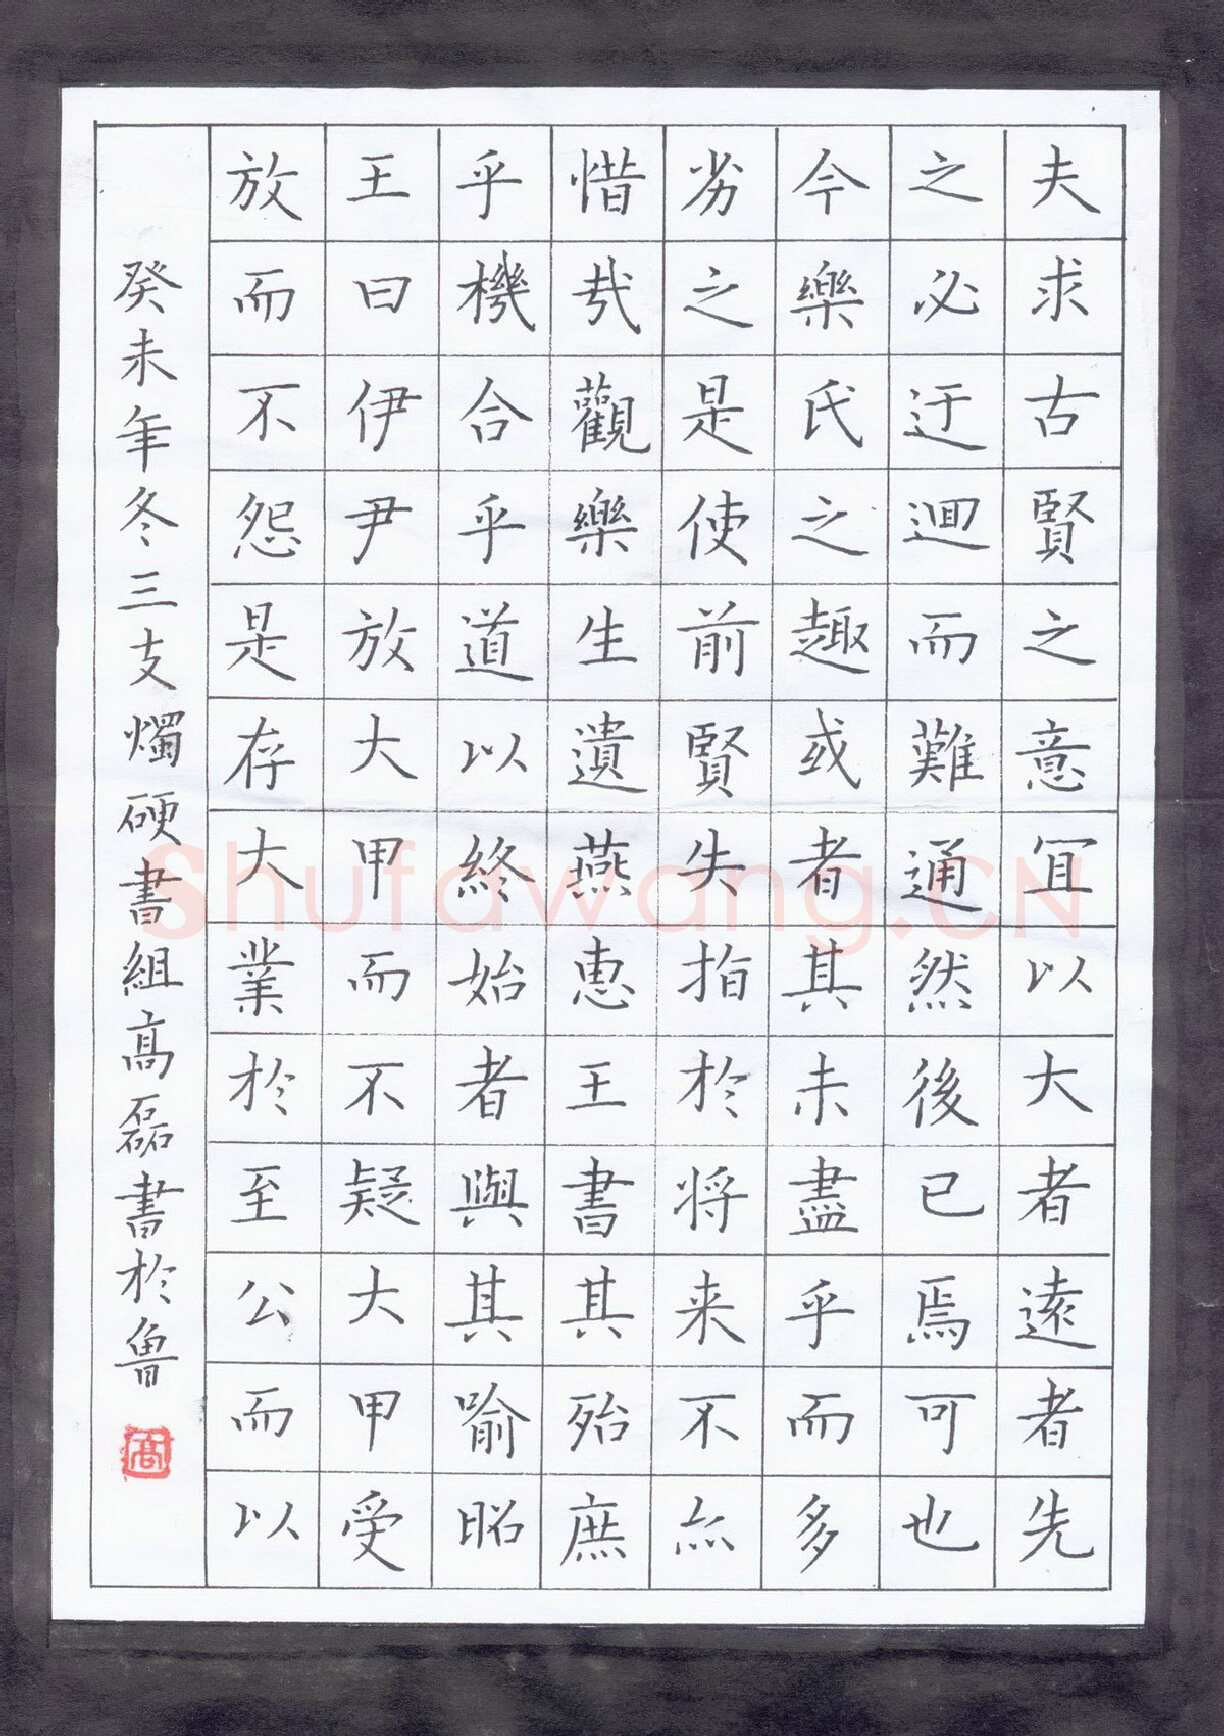 夫求古賢之意宜以大者遠者先
之必迂迴而難通然後已焉可也
今樂氏之趣或者其未盡乎而多
劣之是使前賢失指於将来不亦
惜哉觀樂生遺燕惠王書其殆庶
乎機合乎道以終始者與其喻昭
王曰伊尹放大甲而不疑大甲受
放而不怨是存大業於至公而以
癸未年冬三支燭硬書組高磊書於魯
高
Shufawang.CN